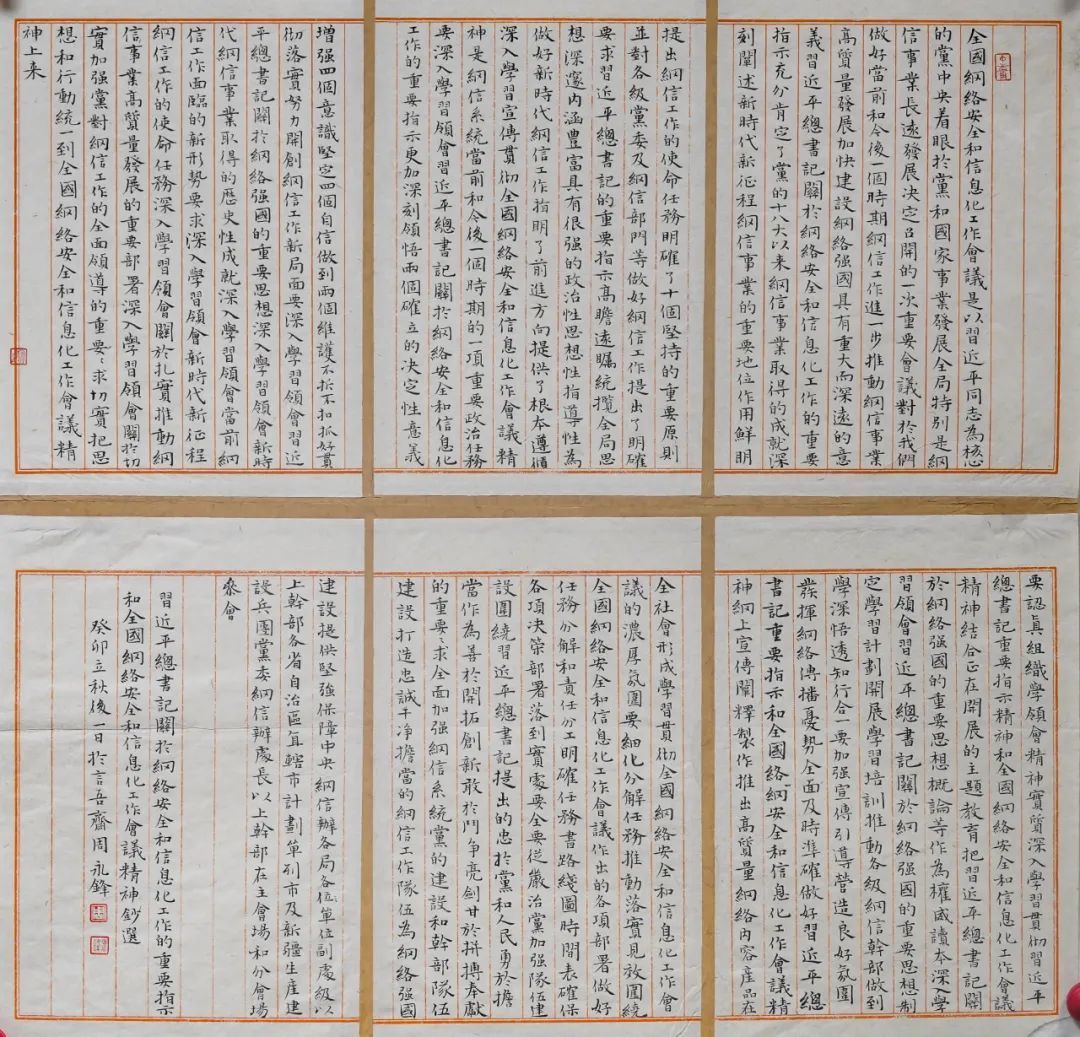 全國網絡安全和信息化工作會議是以習近平同志為核心
的黨中央着眼於黨和國家事業發展全局特別是網
信事業長遠發展决定召開的一次重要會議對於我們
做好當前和今後一個時期網信工作進一步推動網信事業
高質量發展加快建設網絡强國具有重大而深遠的意
義習近平總書記關於網絡安全和信息化工作的重要
指示充分肯定了黨的十八大以来網信事業取得的成就深
刻闡述新時代新征程網信事業的重要地位作用鮮明
提出網信工作的使命任務明確了十個堅持的重要原則
並對各級黨委及網信部門等做好網信工作提出了明確
要求習近平總書記的重要指示高瞻遠矚統攬全局思
想深邃内涵豊富具有很强的政治性思想性指導性為
做好新時代網信工作指明了前進方向提供了根本遵循
深入學習宣傳貫彻全國網絡安全和信息化工作會議精
神是網信系統當前和今後一個時期的一項重要政治任務
要深入學習領會習近平總書記關於網絡安全和信息化
工作的重要指示更加深刻領悟兩個確立的决定性意義
增强四個意識堅定四個自信做到兩個維護不折不扣抓好貫
彻落實努力開創網信工作新局面要深入學習領會習近
平總書記關於網絡强國的重要思想深入學習領會新時
代網信事業取得的歷史性成就深入學習領會當前網
信工作面臨的新形勢要求深入學習領會新時代新征程
網信工作的使命任務深入學習領會關於扎實推動網
信事業高質量發展的重要部署深入學習領會關於切
實加强黨對網信工作的全面領導的重要々求切實把思
想和行動統一到全國網絡安全和信息化工作會議精
神上来
要認真組織學領會精神實質深入學習貫彻習近平
總書記重要指示精神和全國網絡安全和信息化工作會議
精神結合正在開展的主題教育把習近平總書記關
於網絡强國的重要思想概論等作為權威讀本深入學
習領會習近平總書記關於網絡强國的重要思想制
定學習計劃開展學習培訓推動各級網信幹部做到
學深悟透知行合一要加强宣傳引導營造良好氛圍
發揮網絡傳播優勢全面及時準確做好習近平總
書記重要指示和全國絡網安全和信息化工作會議精
神網上宣傳闡釋製作推出高質量網絡内容産品在
全社會形成學習貫彻全國網絡安全和信息化工作會
議的濃厚氛圍要細化分解任務推動落實見效圍繞
全國網絡安全和信息化工作會議作出的各項部署做好
任務分解和責任分工明確任務書路綫圖時間表確保
各項决策部署落到實處要全要從嚴治黨加强隊伍建
設圍繞習近平總書記提出的忠於黨和人民勇於擔
當作為善於開拓創新敢於鬥争亮劍甘於拼搏奉獻
的重要々求全面加强網信系統黨的建設和幹部隊伍
建設打造忠誠干净擔當的網信工作隊伍為網絡强國
建設提供堅強保障中央網信辦各局各位單位副處級以
上幹部各省自治區直轄市計劃單列市及新疆生産建
設兵團黨委網信辦處長以上幹部在主會場和分會場
參會
習近平總書記關於網絡安全和信息化工作的重要指示
和全國網絡安全和信息化工作會議精神鈔選
癸卯立秋後一日於言吾齋周永鋒